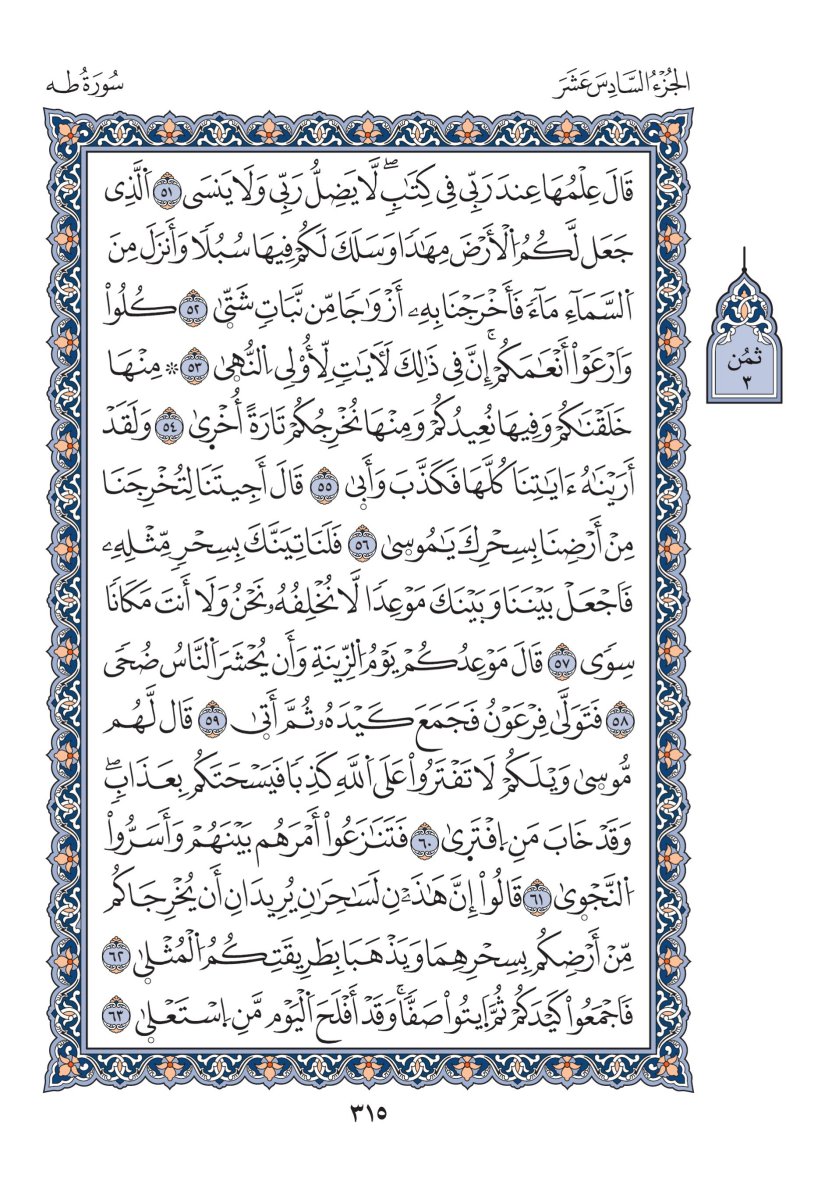 الجُزْءُ السَّادِسَ عَشَرَ
سُورَةُ طه
قَالَ عِلْمُهَا عِندَ رَبِّي فِي كِتَٰبٖۖ لَّا يَضِلُّ رَبِّي وَلَا يَنسَى ٥١ اَلَّذِى
جَعَل لَّكُمُ اُلْأَرْضَ مِهَٰدٗا وَسَلَكَ لَكُمْ فِيهَا سُبُلٗا وَأَنزَلَ مِنَ
اَلسَّمَآءِ مَآءٗ فَأَخْرَجْنَا بِهِۦ أَزْوَٰجٗا مِّن نَّبَاتٖ شَتّۭىٰ ٥٢ كُلُواْ
وَارْعَوْاْ أَنْعَٰمَكُمْۚ إِنَّ فِي ذَٰلِكَ لَأٓيَٰتٖ لِّأُوْلِي اِلنُّهۭىٰ ٥٣ ۞ مِنْهَا
خَلَقْنَٰكُمْ وَفِيهَا نُعِيدُكُمْ وَمِنْهَا نُخْرِجُكُمْ تَارَةً أُخْرۭىٰ ٥٤ وَلَقَدْ
أَرَيْنَٰهُ ءَايَٰتِنَا كُلَّهَا فَكَذَّبَ وَأَبۭىٰ ٥٥ قَالَ أَجِيتَنَا لِتُخْرِجَنَا
مِنْ أَرْضِنَا بِسِحْرِكَ يَٰمُوسۭىٰ ٥٦ فَلَنَاتِيَنَّكَ بِسِحْرٖ مِّثْلِهِۦ
فَاجْعَلْ بَيْنَنَا وَبَيْنَكَ مَوْعِدٗا لَّا نُخْلِفُهُۥ نَحْنُ وَلَا أَنتَ مَكَانٗا
سِوٗى ٥٧ قَالَ مَوْعِدُكُمْ يَوْمُ اُلزِّينَةِ وَأَن يُحْشَرَ اَلنَّاسُ ضُحٗى
٥٨ فَتَوَلَّىٰ فِرْعَوْنُ فَجَمَعَ كَيْدَهُۥ ثُمَّ أَتۭىٰ ٥٩ قَال لَّهُم
مُّوسۭىٰ وَيْلَكُمْ لَا تَفْتَرُواْ عَلَى اَللَّهِ كَذِبٗا فَيَسْحَتَكُم بِعَذَابٖۖ
وَقَدْ خَابَ مَنِ اِفْتَرۭىٰ ٦٠ فَتَنَٰزَعُواْ أَمْرَهُم بَيْنَهُمْ وَأَسَرُّواْ
اُلنَّجْوۭىٰ ٦١ قَالُواْ إِنَّ هَٰذَيْنِ لَسَٰحِرَٰنِ يُرِيدَانِ أَن يُخْرِجَاكُم
مِّنْ أَرْضِكُم بِسِحْرِهِمَا وَيَذْهَبَا بِطَرِيقَتِكُمُ اُلْمُثْلۭىٰ ٦٢
فَاجْمَعُواْ كَيْدَكُمْ ثُمَّ اَيتُواْ صَفّٗاۚ وَقَدْ أَفْلَحَ اَلْيَوْم مَّنِ اِسْتَعْلۭىٰ ٦٣
ثُمُن
٣
٣١٥